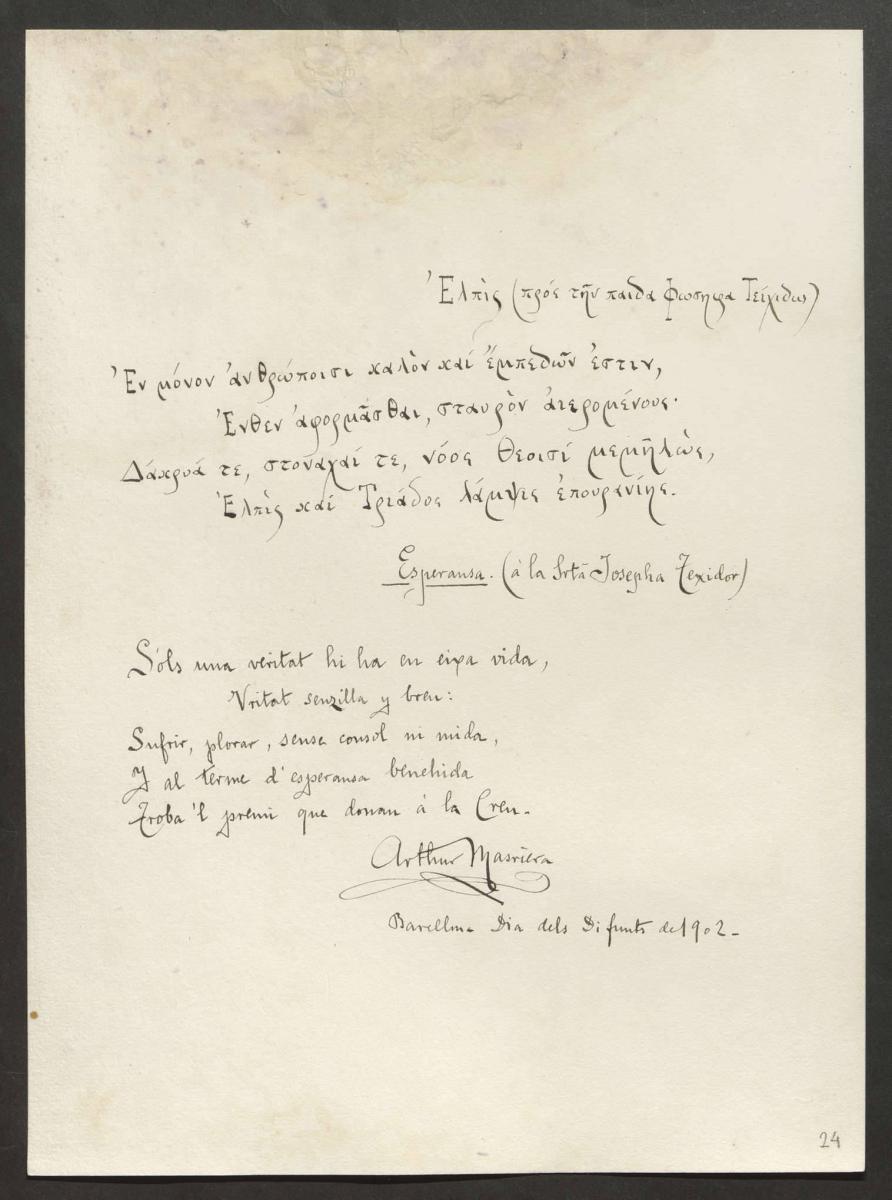 Ἐλπὶς (πρός τῆν παιδα Φωσηφα Τείχιδωρ)
Ἐν μόνον ἀνθρώποισι καλὸν καί ἔμπεδῶν ἐστιν,
Ἐνθεν ἀφορμᾶσθαι, σταυρὸν ἀιερομένους·
Δάκρυά τε, στοναχαί τε, νόος θεοισί μεμῆλὼς,
Ἐλπὶς καί Τριάδος λάμψις ἐπουρανίης.
Esperansa. (á la Srta Josepha Texidor)
Sóls una veritat hi ha en eixa vida,
Vritat senzilla y breu:
Sufrir, plorar, sense consol ni mida,
Y al terme d'esperansa benehida
Troba 'l premi que donan á la Creu.
Arthur Masriera
Barcelona Dia dels Difunts de 1902-
24